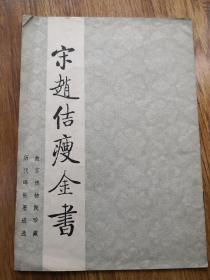 宋趙佶瘦金書
故宮博物院珍藏
歷代碑帖墨迹選